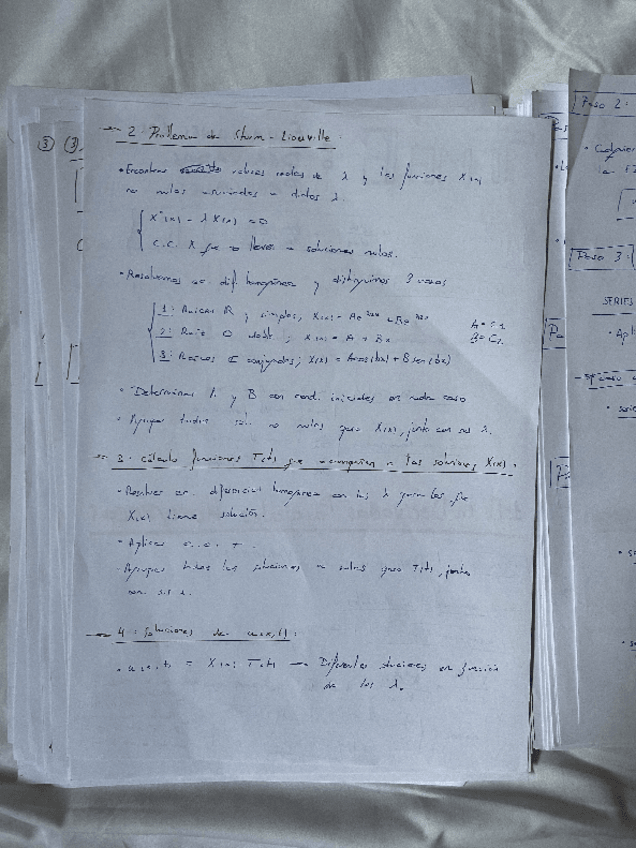 2: Problema de Sturm-Liouville:
• Encontrar valores reales de λ y las funciones X(x)
no nulas asociadas a dichos λ.
X''(x) - λ X(x) = 0
C.C. X que no lleve a soluciones nulas.
• Resolvemos ec. dif. homogénea y distinguimos 3 casos
1: Raíces ℝ y simples; X(x) =
2: Raíz 0 doble; X(x) = A + Bx
3: Raíces ℂ conjugadas; X(x) = Acos(bx) + B sen(bx)
A = C1
B = C2
• Determinar A y B con cond. iniciales en cada caso
• Agrupar todas sol. no nulas para X(x), junto con sus λ.
3: Cálculo funciones T(t) que acompañan a las soluciones X(x):
• Resolver ec. diferencial homogénea con los λ para los que
X(x) tiene solución.
• Aplicar
• Agrupar todas las soluciones no nulas para T(t), junto
con sus λ.
4: Soluciones de u(x,t):
• u(x,t) = X(x) T(t) → Diferentes soluciones en función
de los λ.
③
Paso 2:
Paso 3:
SERIES